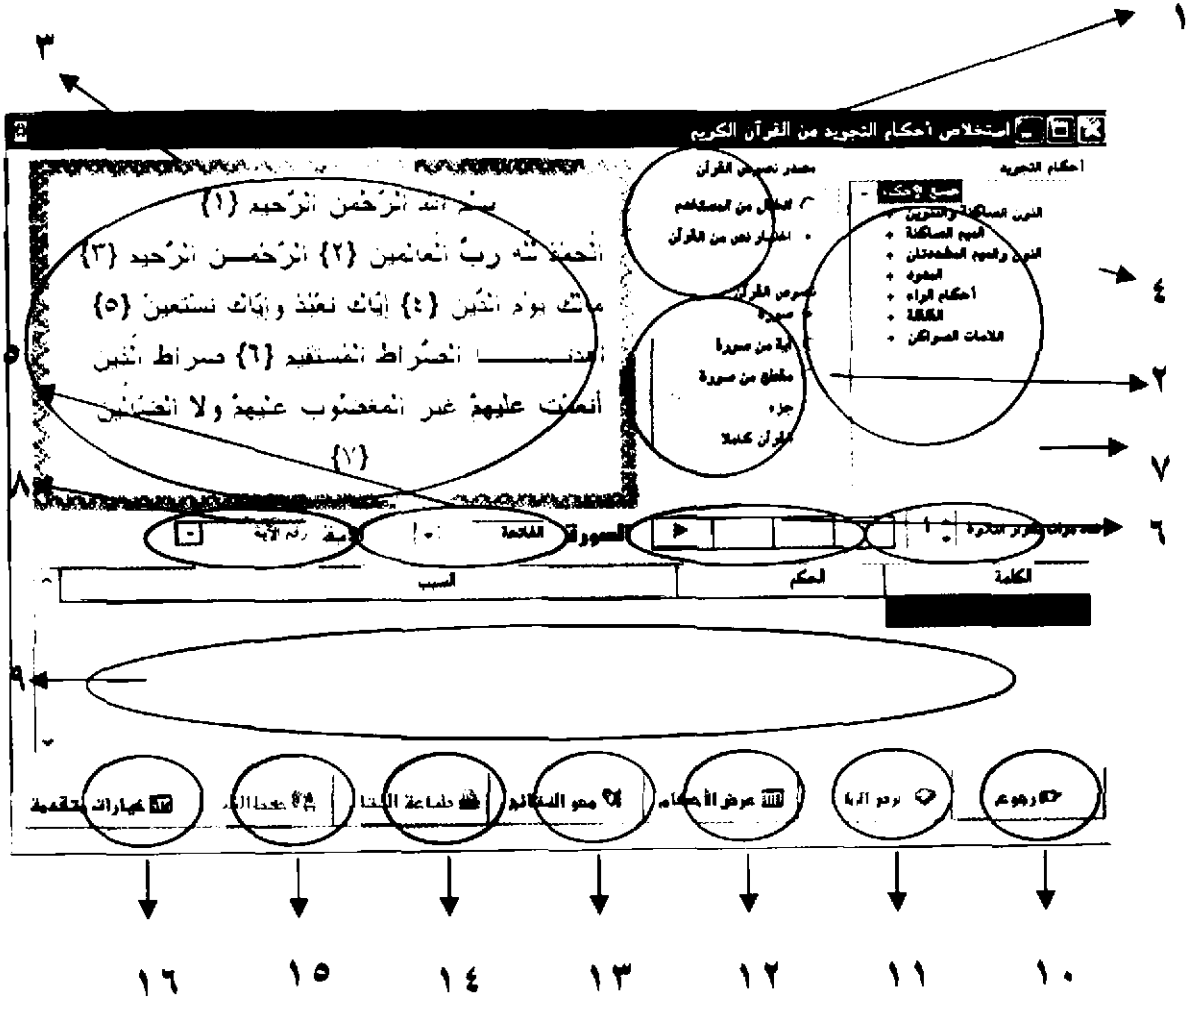 ١
٣
استخلاص أحكام التجويد من القرآن الكريم
أحكام التجويد
جميع الأحكام
النون الساكنة والتنوين
الميم الساكنة
النون والميم المشددتان
المدود
أحكام الراء
القلقلة
اللامات السواكن
مصدر نصوص القرآن
إدخال من المستخدم
اختيار نص من القرآن
نصوص القرآن
سورة
آية من سورة
مقطع من سورة
جزء
القرآن كاملا
بسم الله الرّحمن الرّحيم {١}
الحمد لله ربّ العالمين {٢} الرّحمـــن الرّحيم {٣}
مالك يوم الدّين {٤} إيّاك نعبد وإيّاك نستعين {٥}
اهدنـــــــا الصّراط المستقيم {٦} صراط الّذين
أنعمت عليهمْ غير المغضوب عليهمْ ولا الضّالّين
{٧}
٤
٢
٥
٧
٨
٦
عدد مرات تكرار التلاوة
١
السورة
الفاتحة
رقم الآية
الكلمة
الحكم
السبب
٩
رجوع
عرض الأحكام
محو النتائج
طباعة
خيارات متقدمة
١٠
١١
١٢
١٣
١٤
١٥
١٦